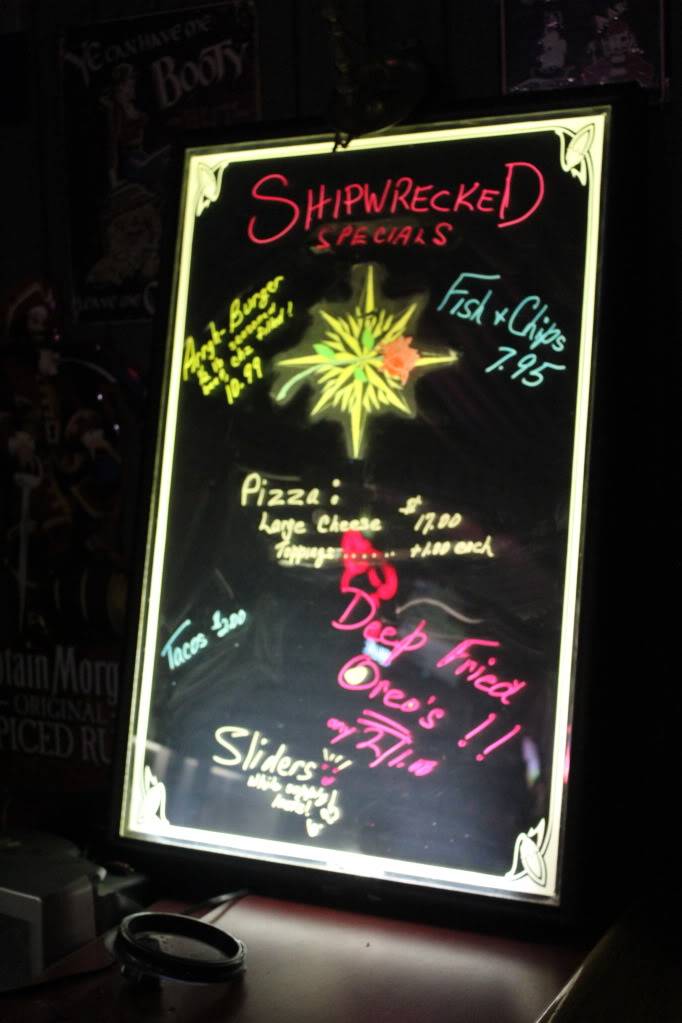 YE CAN HAVE ME
BOOTY
SHIPWRECKED
SPECIALS
Arrgh-Burger
10.99
Fish & Chips
7.95
Pizza:
Large Cheese $17.00
Toppings...... +1.00 each
Tacos $2.00
Deep Fried
Oreo's!!
2/1.00
Sliders
while supply
lasts!
tain Morg
- ORIGINAL -
PICED RU